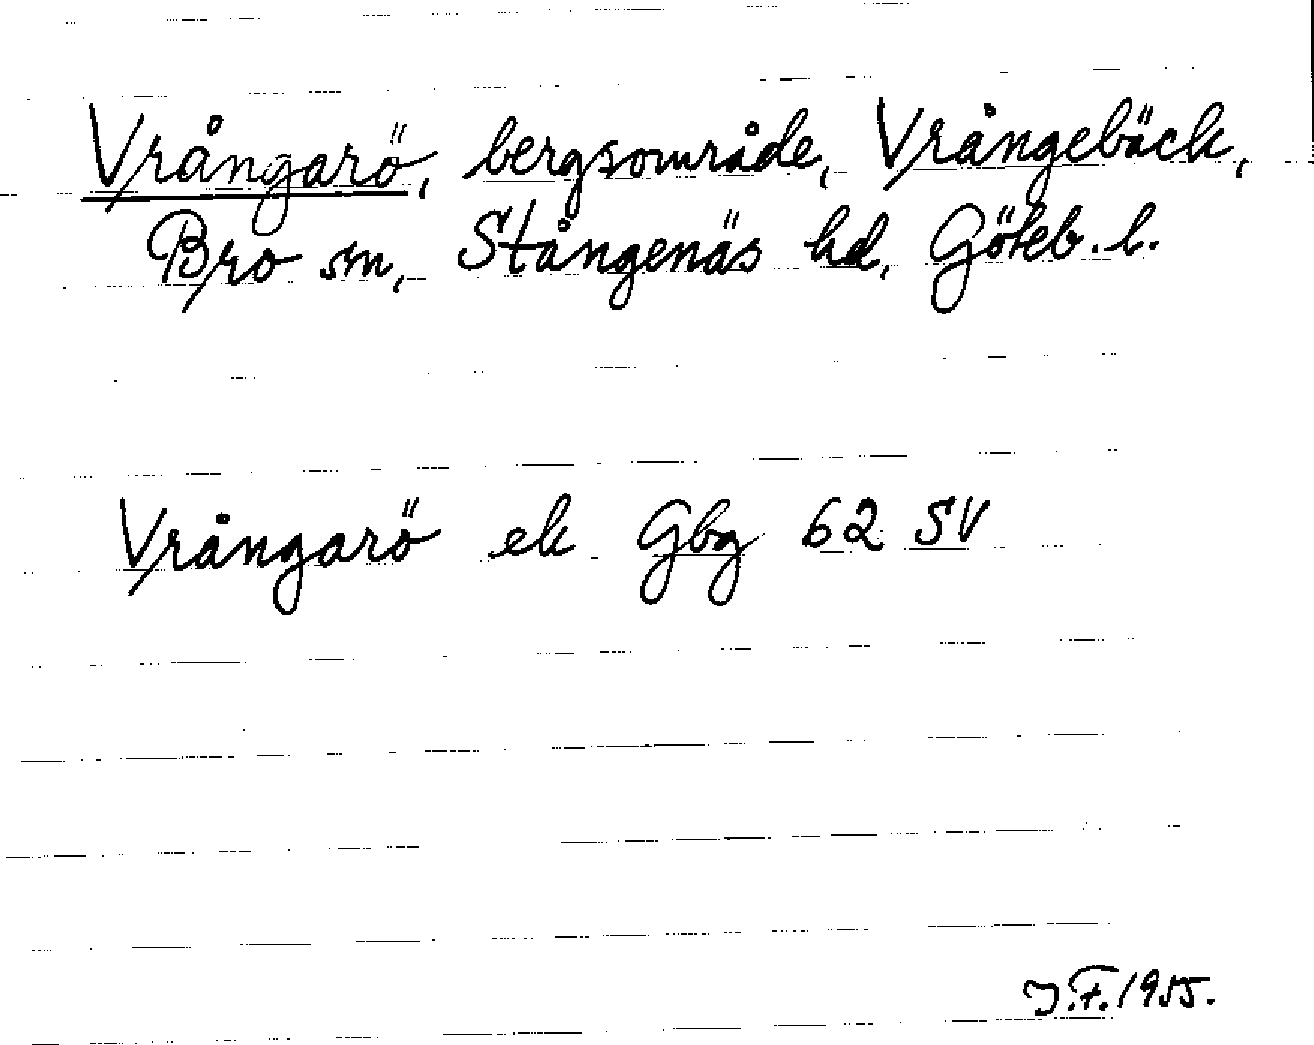 Vrångarö, bergsområde, Vrångebäck,
Bro sn, Stångenäs hd, Göteb. l.
Vrångarö ek Gbg 62 SV
J.F. 1955.